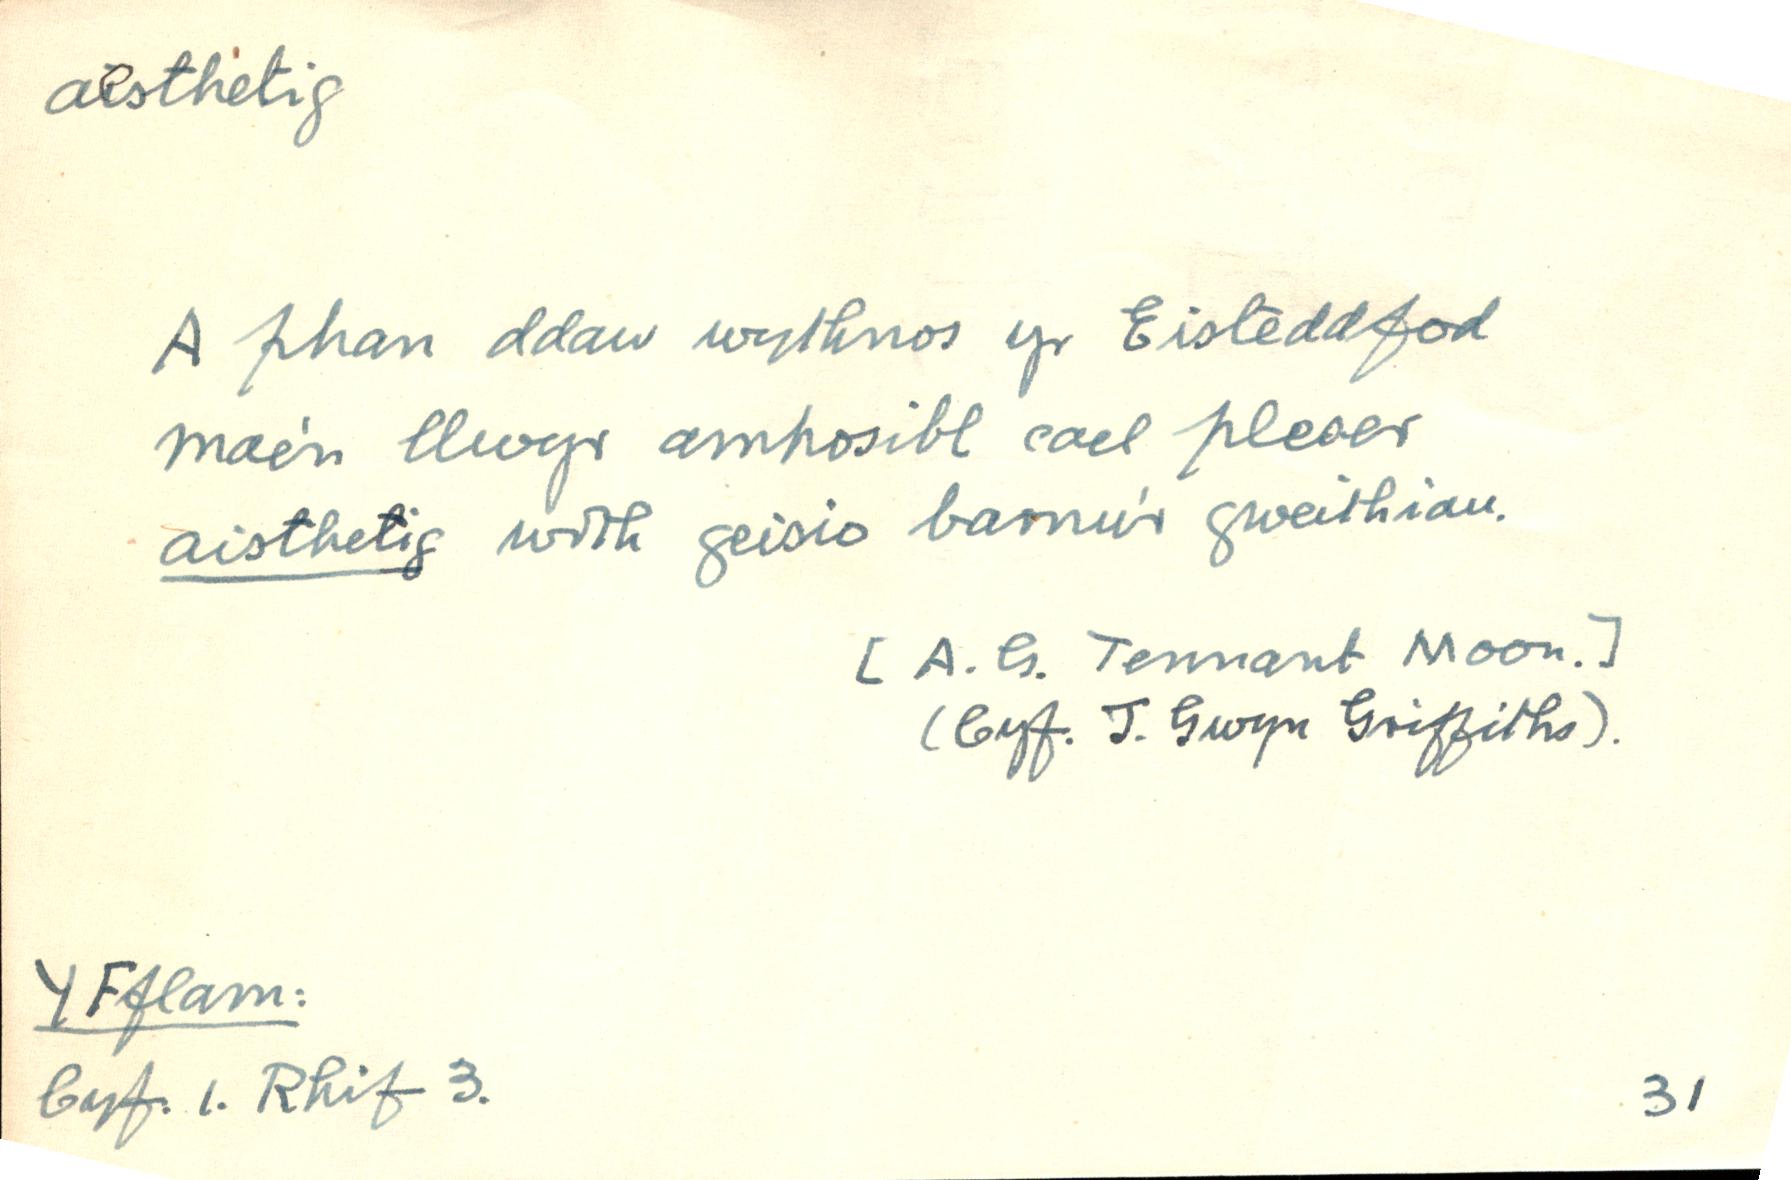 aesthetig
A phan ddaw wythnos yr Eisteddfod
mae'n llwyr amhosibl cael pleser
aisthetig wrth geisio barnu'r gweithiau.
[ A. G. Tennant Moon. ]
(Cyf. J. Gwyn Griffiths).
Y Fflam:
Cyf. 1. Rhif 3.
31